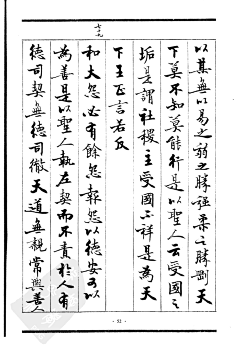 以其無以易之弱之勝强柔之勝剛天
下莫不知莫能行是以聖人云受國之
垢是謂社稷主受國不祥是為天
下王正言若反
七十九
和大怨必有餘怨報怨以德安可以
為善是以聖人執左契而不責於人有
德司契無德司徹天道無親常與善人
- 52 -